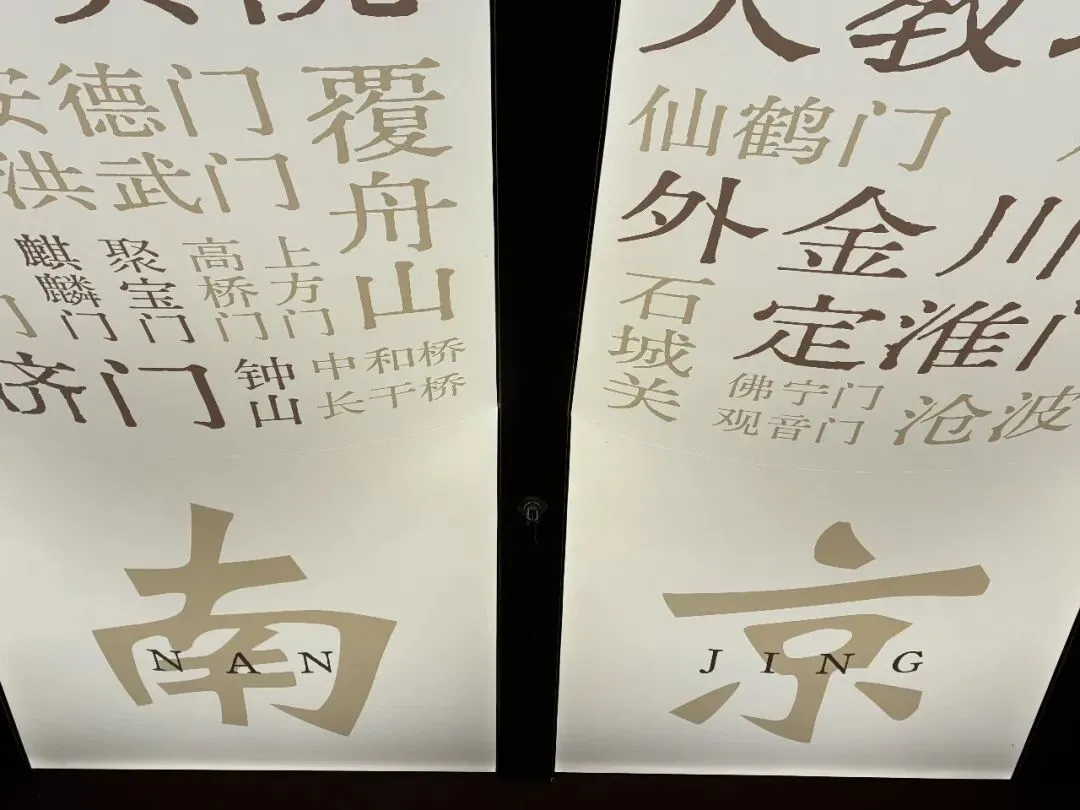 安德门
洪武门
覆舟山
麒麟门
聚宝门
高桥门
上方门
门
齐门
钟山
中和桥
长干桥
南
NAN
教
仙鹤门
外金川
石城关
定淮门
佛宁门
观音门
沧波
京
JING